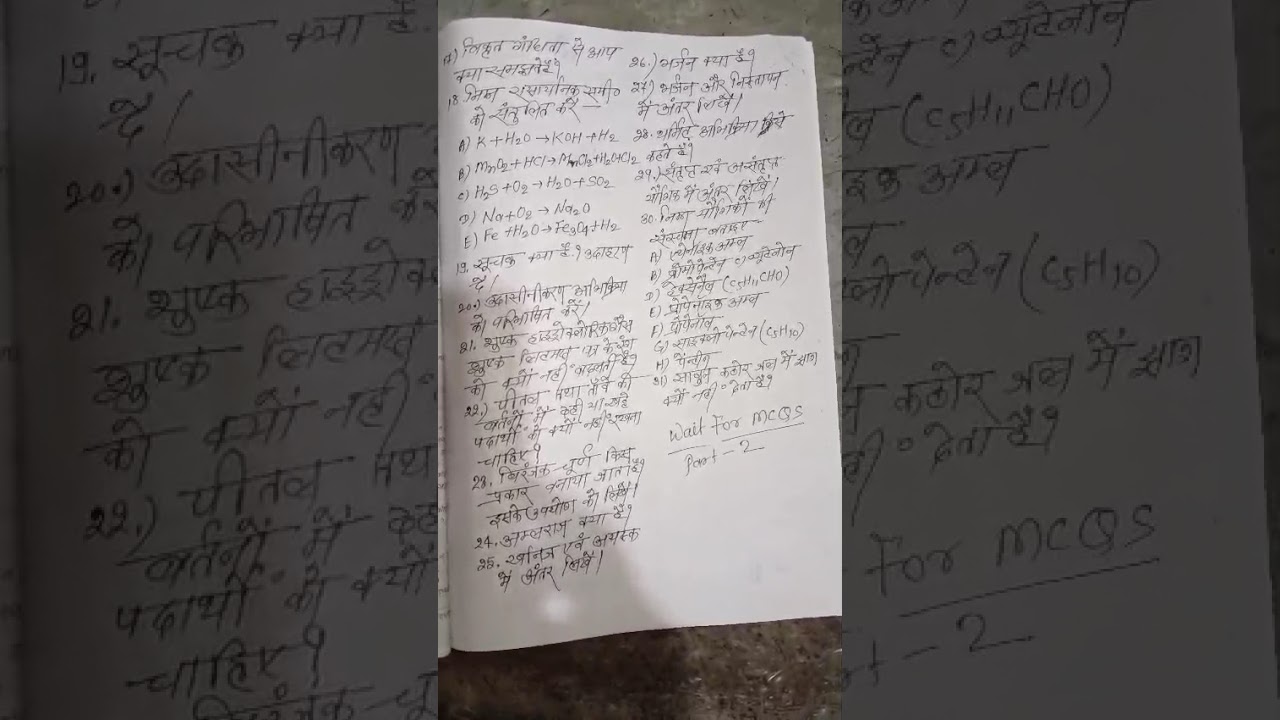 विकृत गंधिता से आप
क्या समझते हैं?
18. निम्न रासायनिक समी०
को संतुलित करें
A) K + H2O → KOH + H2
B) MnO2 + HCl → MnCl2 + H2O + Cl2
C) H2S + O2 → H2O + SO2
D) Na + O2 → Na2O
E) Fe + H2O → Fe3O4 + H2
19. सूचक क्या है? उदाहरण
दें।
20.) उदासीनीकरण अभिक्रिया
को परिभाषित करें।
21. शुष्क हाइड्रोक्लोरिक गैस
शुष्क लिटमस पत्र के रंग
को क्यों नहीं बदलती है?
22.) पीतल तथा ताँबे की
बर्तनों में दही या खट्टे
पदार्थों को क्यों नहीं रखना
चाहिए?
23. विरंजक चूर्ण किस
प्रकार बनाया जाता है?
इसके उपयोग को लिखें।
24. अम्लराज क्या है?
25. खनिज एवं अयस्क
में अंतर लिखें।
26.) भर्जन क्या है?
27) भर्जन और निस्तापन
में अंतर लिखें।
28. थर्मिट अभिक्रिया किसे
कहते हैं?
29.) संतृप्त एवं असंतृप्त
यौगिक में अंतर लिखें।
30. निम्न यौगिकों की
संरचना बनाइए -
A) एथेनाइक अम्ल
B) ब्रोमोपेन्टेन C) ब्यूटेनोन
D) हेक्सेनैल (C5H11CHO)
E) प्रोपेनाइक अम्ल
F) प्रोपेनॉल
G) साइक्लो पेन्टेन (C5H10)
H) बेन्जीन
31) साबुन कठोर जल में झाग
क्यों नहीं देता है?
Wait For MCQS
Part - 2